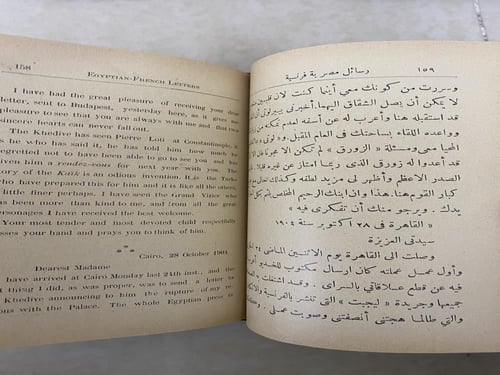 158
EGYPTIAN-FRENCH LETTERS
I have had the great pleasure of receiving your dear
letter, sent to Budapest, yesterday here, as it gives me
pleasure to see that you are always with me and that two
sincere hearts can never fall out.
The Khedive has seen Pierre Loti at Constantinople, it
is he who has said it, he has told him how much he
regretted not to have been able to go to see you and he
given him a rendez-vous for next year with you. The
story of the Kaïk is an odious invention, it is the Turks
who have prepared this for him and it is like all the others,
little finer perhaps. I have seen the Grand Vizier who
has been more than kind to me, and from all the great
personages I have received the best welcome.
Your most tender and most devoted child respectfully
kisses your hand and prays you to think of him.
Cairo, 28 October 1904
Dearest Madame
I have arrived at Cairo Monday last 24th inst., and the
thing I did, as was proper, was to send a letter to
Khedive announcing to him the rupture of my re-
ions with the Palace. The whole Egyptian press is
١٥٩
رسائل مصرية فرنسية
وسررت من كونك معي أينما كنت لان قلبين
لا يمكن أن يصل الشقاق اليهما أخبرني بيير لوتي أن
قد استقبله هنا وأعرب له عن أسفه لعدم تمكنه من
وواعده اللقاء بساحتك في العام المقبل
المحيا ومسئلة « الزورق » لم تكن الا
قد أعدوا له زورق الذي ربما امتاز عن غيره
الصدر الاعظم وأظهر لي مزيد لطفه وكذلك
كبار القوم هنا. هذا وان ابنك الرحيم المخلص يلثم بكل
يدك . ويرجو منك أن تفتكري فيه »
« القاهرة في ٢٨ اكتوبر سنة ١٩٠٤
سيدتي العزيزة
وصلت الى القاهرة يوم الاثنين الماضي ٢٤
وأول عمل عملته كان ارسال مكتوب للخديوي
فيه عن قطع علاقاتي بالسراي . وقد
جميعها وجريدة « ليجبت » التي تنشر بالفرنسية
والتي طالما هجتني أنصفتني وصوبت عملي .